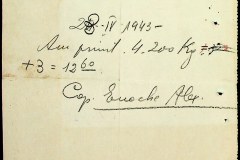 28-IV 1943-
Am primit 4.200 Kg
+3 = 12 60
Cap. Enache Alex.